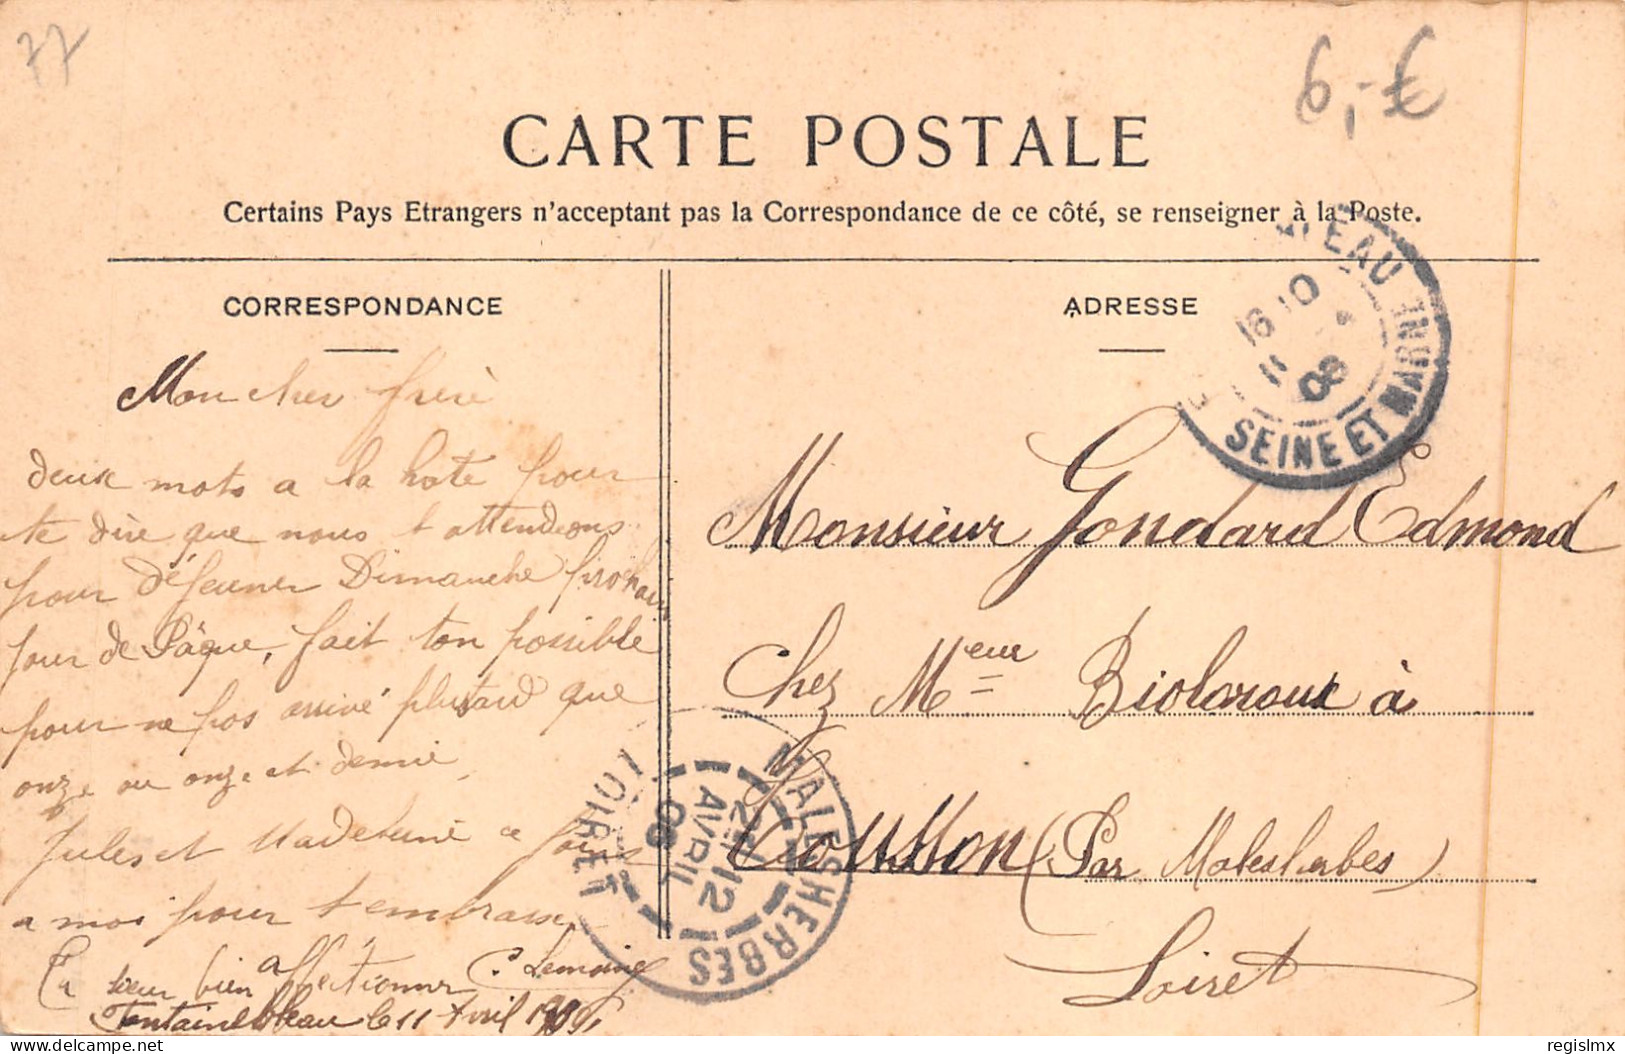 77
6,-€
CARTE POSTALE
Certains Pays Etrangers n'acceptant pas la Correspondance de ce côté, se renseigner à la Poste.
CORRESPONDANCE
Mon cher frère
deux mots a la hate pour
te dire que nous t attendons
pour déjeuner Dimanche prochain
jour de Pâque, fait ton possible
pour ne pas arrivé plustard que
onze ou onze et demie
Jules et Madeleine
a moi pour t embrasse
Ta sœur bien affectionner C. Lemoine
Fontainebleau le 11 Avril
ADRESSE
EAU
SEINE ET MARNE
Monsieur Gondard Edmond
Chez Meur
à
(Par Malesherbes)
Loiret
MALESHERBES
LOIRET
12
AVRIL
08
regislmx
delcampe.net